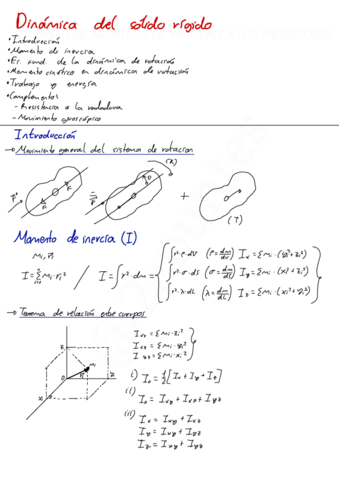 Dinámica del sólido rígido
• Introducción
• Momento de inercia
• Ec. fund. de la dinámica de rotación
• Momento cinético en dinámica de rotación
• Trabajo y energía
• Complementos
- Resistencia a la rodadura
- Movimiento giroscópico
Introducción
→ Movimiento general del sistema de rotación
(R)
+
(T)
Momento de inercia (I)
I = Σ mi·ri² / I = ∫ r²·dm =
∫ r²·ρ·dV (ρ = dm/dV) Ix = Σ mi·(yi² + zi²)
∫ r²·σ·ds (σ = dm/ds) Iy = Σ mi·(xi² + zi²)
∫ r²·λ·dL (λ = dm/dL) Iz = Σ mi·(xi² + yi²)
→ Teorema de relación entre cuerpos
Ixy = Σ mi·zi²
Ixz = Σ mi·yi²
Iyz = Σ mi·xi²
i) Io = ½ [Ix + Iy + Iz]
ii) Io = Ixy + Ixz + Iyz
iii) Ix = Ixy + Ixz
Iy = Ixy + Iyz
Iz = Ixz + Iyz